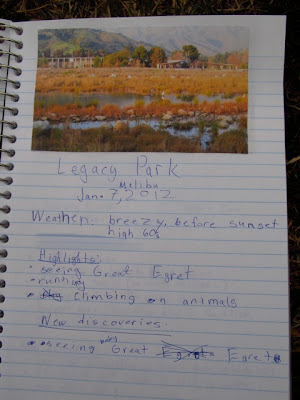 Legacy Park
Malibu
Jan. 7, 2012
Weather: breezy, before sunset
high 60s
Highlights:
• seeing Great Egret
• running
• climbing on animals
New discoveries
• seeing Great Egret